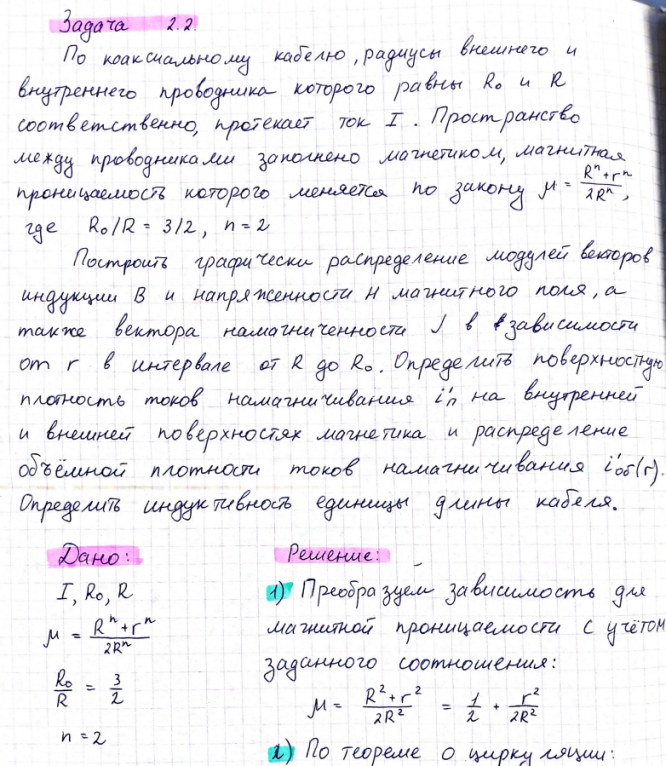 Задача 2.2.
По коаксиальному кабелю, радиусы внешнего и
внутреннего проводника которого равны R₀ и R
соответственно, протекает ток I. Пространство
между проводниками заполнено магнетиком, магнитная
проницаемость которого меняется по закону μ = (Rⁿ+rⁿ)/(2Rⁿ),
где R₀/R = 3/2, n = 2
Построить графически распределение модулей векторов
индукции B и напряженности H магнитного поля, а
также вектора намагниченности J в зависимости
от r в интервале от R до R₀. Определить поверхностную
плотность токов намагничивания i'п на внутренней
и внешней поверхностях магнетика и распределение
объёмной плотности токов намагничивания i'об(r).
Определить индуктивность единицы длины кабеля.
Дано:
I, R₀, R
μ = (Rⁿ+rⁿ)/(2Rⁿ)
R₀/R = 3/2
n = 2
Решение:
1) Преобразуем зависимость для
магнитной проницаемости с учётом
заданного соотношения:
μ = (R²+r²)/(2R²) = 1/2 + r²/(2R²)
2) По теореме о циркуляции: